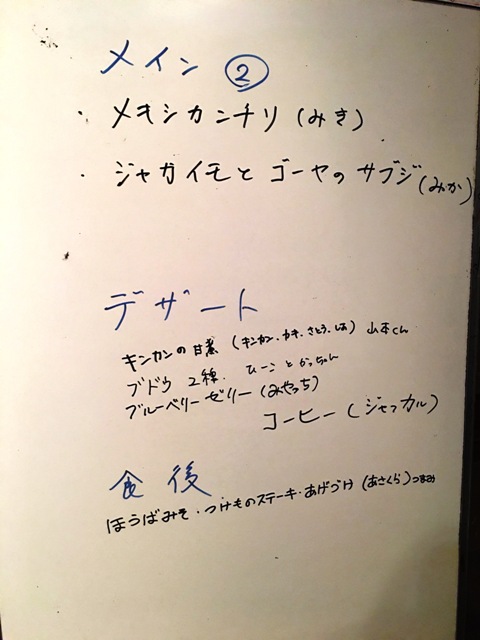 メイン ②
・メキシカンチリ (みき)
・ジャガイモとゴーヤのサブジ (みか)
デザート
キンカンの甘煮 (キンカン・カキ・さとう・しお) 山本くん
ブドウ 2種. ひーこ と かっちゃん
ブルーベリーゼリー (みやっち)
コーヒー (ジャッカル)
食後
ほうばみそ・つけものステーキ・あげづけ (あさくら) つまみ